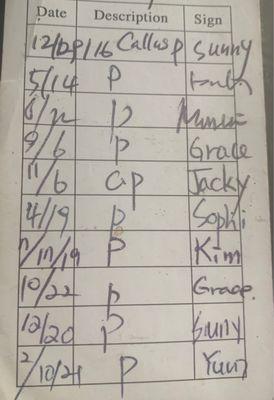 Date Description Sign
12/29/16 Callus p Sunny
5/14 p
6/ p
9/6 p Grace
11/6 Cp Jacky
4/19 p Sophi
11/17/19 p Kim
10/22 p Grace.
12/20 p Sunny
2/10/21 p Yun